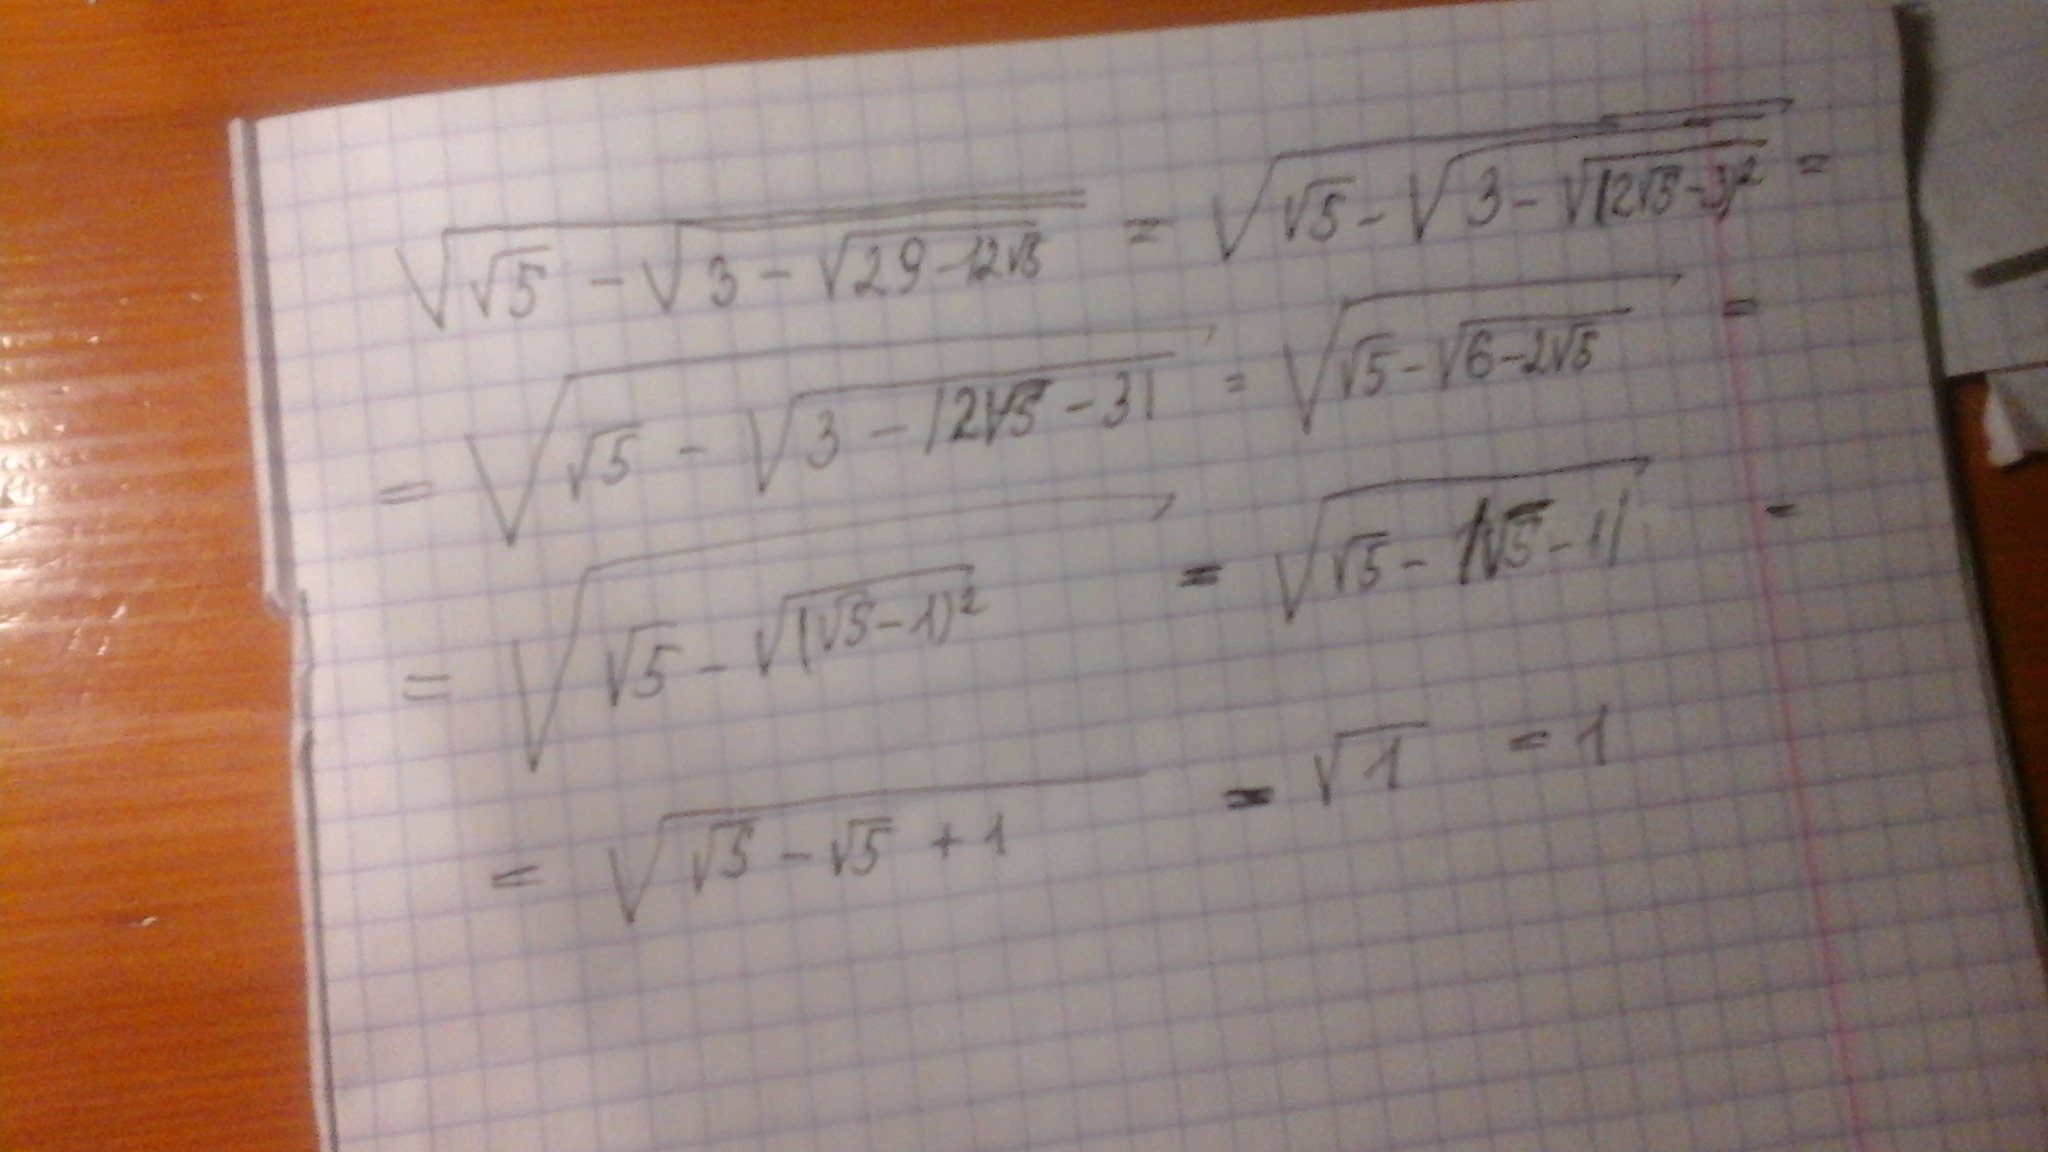 √(√5 - √(3 - √(29 - 12√5))) = √(√5 - √(3 - √((2√5 - 3)²))) =
= √(√5 - √(3 - |2√5 - 3|)) = √(√5 - √(6 - 2√5)) =
= √(√5 - √((√5 - 1)²)) = √(√5 - |√5 - 1|) =
= √(√5 - √5 + 1) = √1 = 1